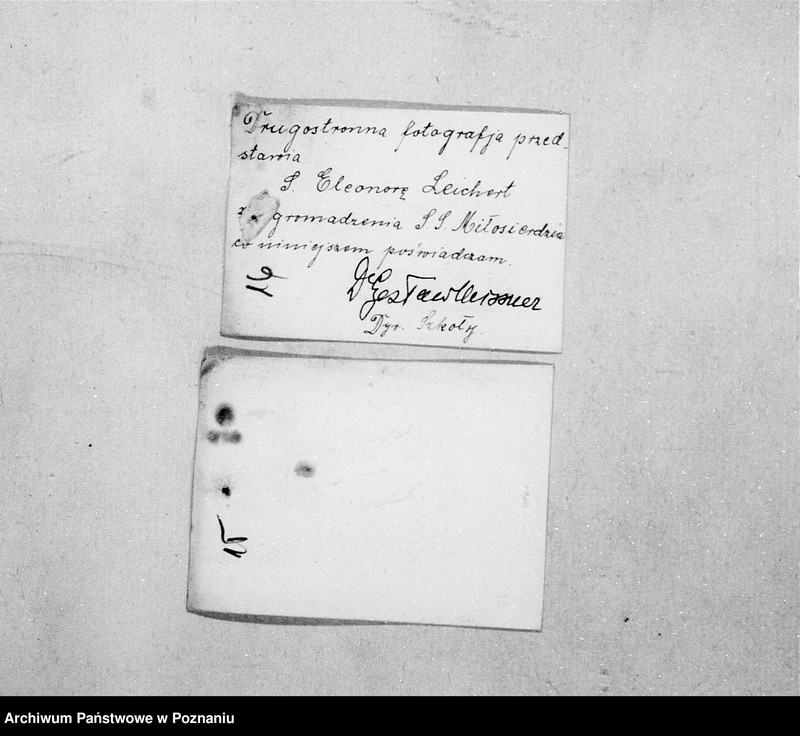 Drugostronna fotografja przed-
stawia
S. Eleonorę Leichert
gromadzenia S.S. Miłosierdzia
co niniejszem poświadczam.
16
Dr Czesław Meissner
Dyr. Szkoły.
15
Archiwum Państwowe w Poznaniu